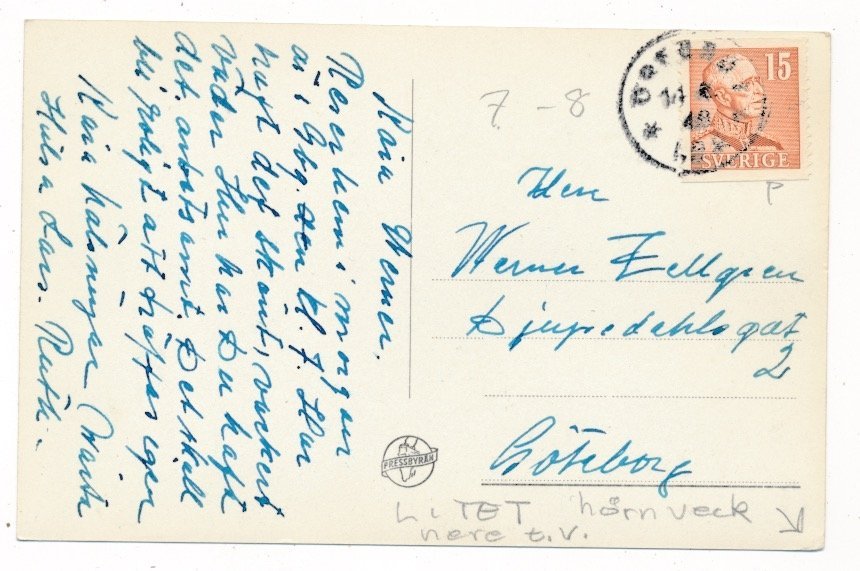 Kära Werner.
Reser hem i morgon
är i Gbg. den kl. 7. Har
haft det skönt, vackert
väder Hur har Du haft
det, arbetsamt. Det skall
bli roligt att träffas igen
Kära hälsningar
Hälsa Lars. Ruth.
7 - 8
15
SVERIGE
48
P
Herr
Werner Zellgren
Djupedahlsgat
2
Göteborg
PRESSBYRÅN
LITET hörnveck
nere t.v.